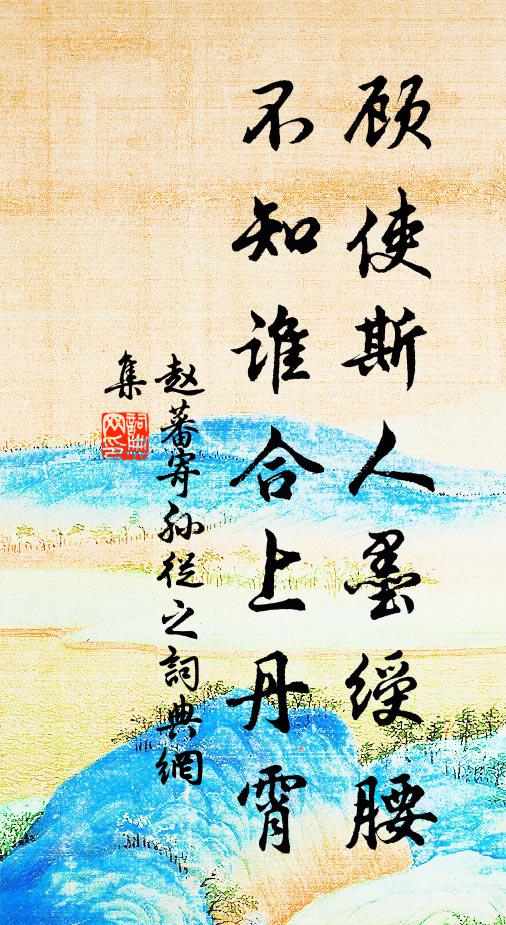 顾使斯人墨绶腰
不知谁合上丹霄
赵蕃寄孙從之詞典網
集
詞典
网印